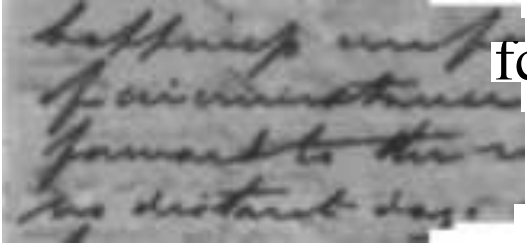 happiness and
fo
of circumstances
forward to the
no distant day.